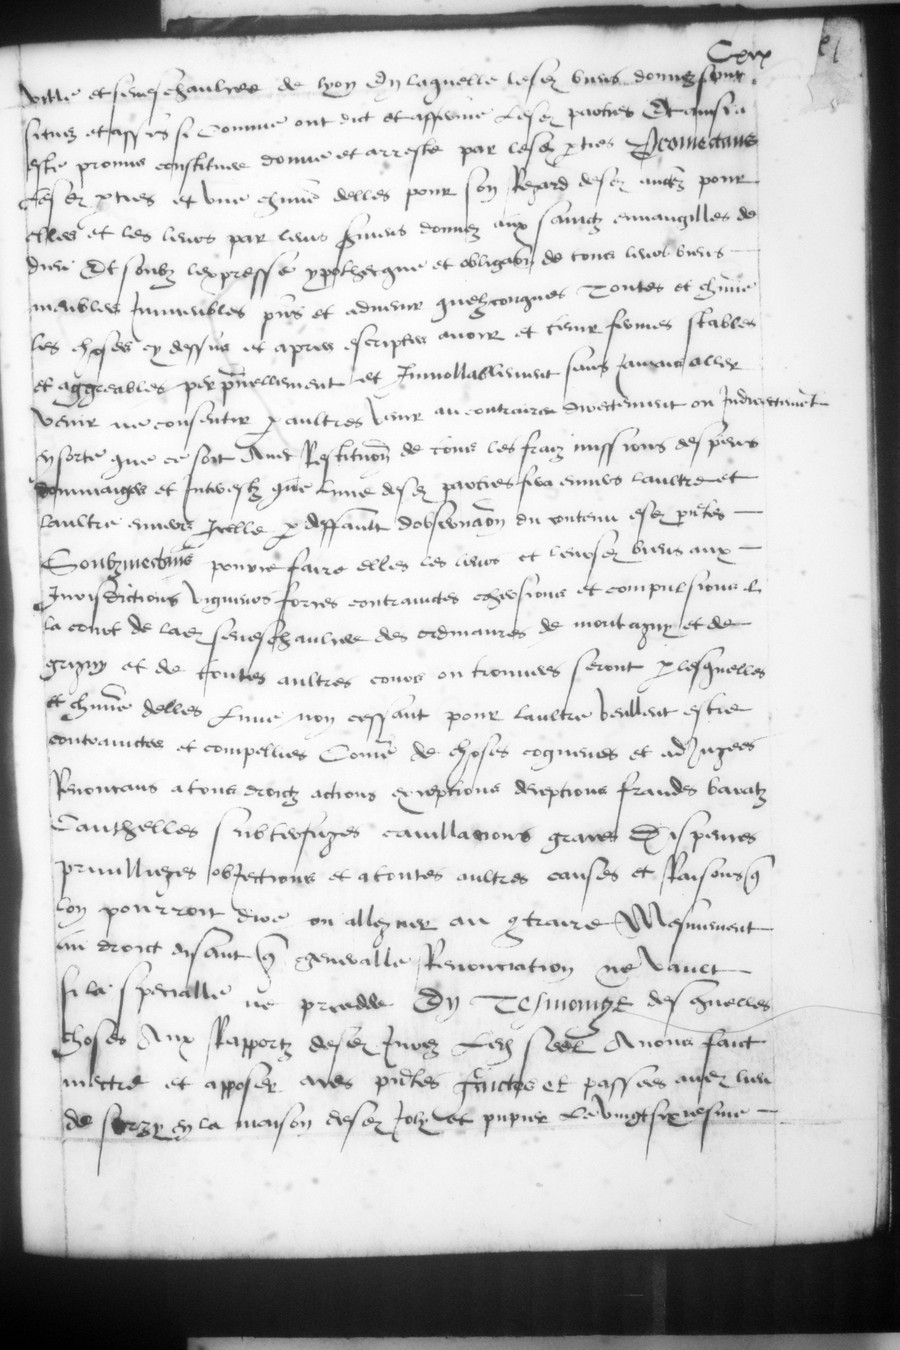 Cxxx
ville et seneschaulcee de lyon En laquelle lesd biens donnez sont
situez et assis si Comme ont dict et afferme Lesd parties Et ainsi a
este promis constitue donne et arreste par lesd pties Promectans
Lesd pties et une chune delles pour son Regard desd pour
elles et les leurs par leurs donnez aux sainctz euvangilles de
dieu Et soubz lexpresse ypothecque et obligaon de tous leurs biens
meubles Immeubles pns et advenir quelzconques Toutes et chune
les choses cy dessus et apres escriptes avoir et tenir fermes stables
et aggreables perpetuellement et Inviollablement sans Jamais aller
venir ne consentir p aultres venir au contraire directement ou Indirectemet
en sorte que ce soit Avec Restituon de tous les fraiz missions despens
dommaiges et Interestz que Lune desd parties fera envers laultre et
laultre envers Icelle p deffault dobservaon du contenu esd pntes
Soubzmectans pource faire elles les leurs et leursd biens aux
Jurisdictions vigueurs forces contrainctes cohersions et compulsions
la court de lad seneschaulcee des ordinaires de montagny et de
grigny et de toutes aultres cours ou trouvees seront p lesquelles
et chune delles Lune non cessant pour laultre veullent estre
contrainctes et compellies Come de choses cogneues et adJugees
Renoncans a tous droictz actions exceptions deceptions fraudes baratz
Cauthelles subterfuges cavillations graces Dispences
privilliegies obJections et a toutes aultres causes et Raisons q
lon pourroit dire ou alleguer au contraire Mesmement
au droict disant q generalle Renonciation ne vault
si la specialle ne precedde En Tesmoing desquelles
choses Aux Rapportz desd Jurez Led Seel Avons faict
mectre et apposer aces pntes faictes et passees aud lieu
de en la maison desd Joly et Le vingtsixiesme